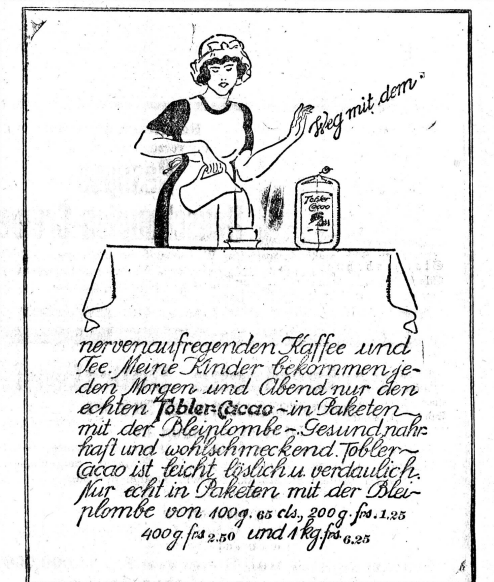 Weg mit dem
Tobler
Cacao
nervenaufregenden Kaffee und
Tee. Meine Kinder bekommen je-
den Morgen und Abend nur den
echten Tobler-Cacao - in Paketen
mit der Bleiplombe -. Gesund nahr-
haft und wohlschmeckend. Tobler-
Cacao ist leicht löslich u. verdaulich.
Nur echt in Paketen mit der Blei-
plombe von 100g. 65 cts., 200g. frs. 1.25
400g. frs 2.50 und 1 kg. frs 6.25